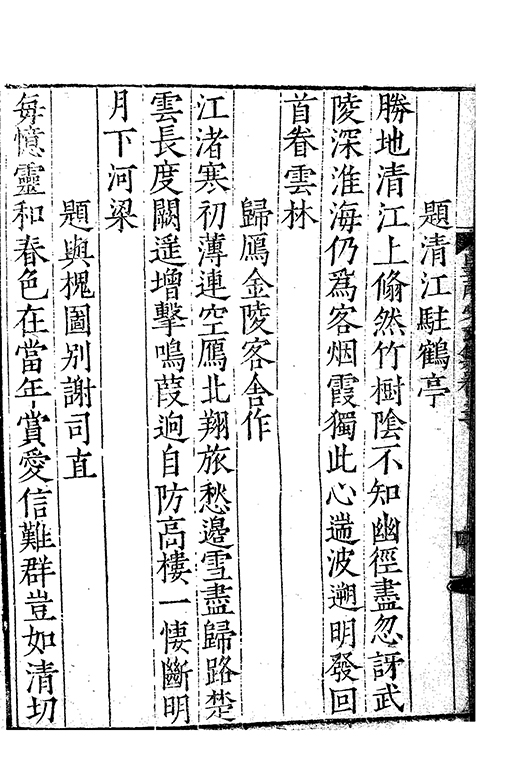 題清江駐鶴亭
勝地清江上翛然竹樹陰不知幽徑盡忽訝武
陵深淮海仍爲客烟霞獨此心遄波遡明發回
首眷雲林
歸鴈金陵客舍作
江渚寒初薄連空鴈北翔旅愁邊雪盡歸路楚
雲長度闕遥增擊鳴葭逈自防高樓一悽斷明
月下河梁
題與槐圖别謝司直
每憶靈和春色在當年賞愛信難群豈如清切